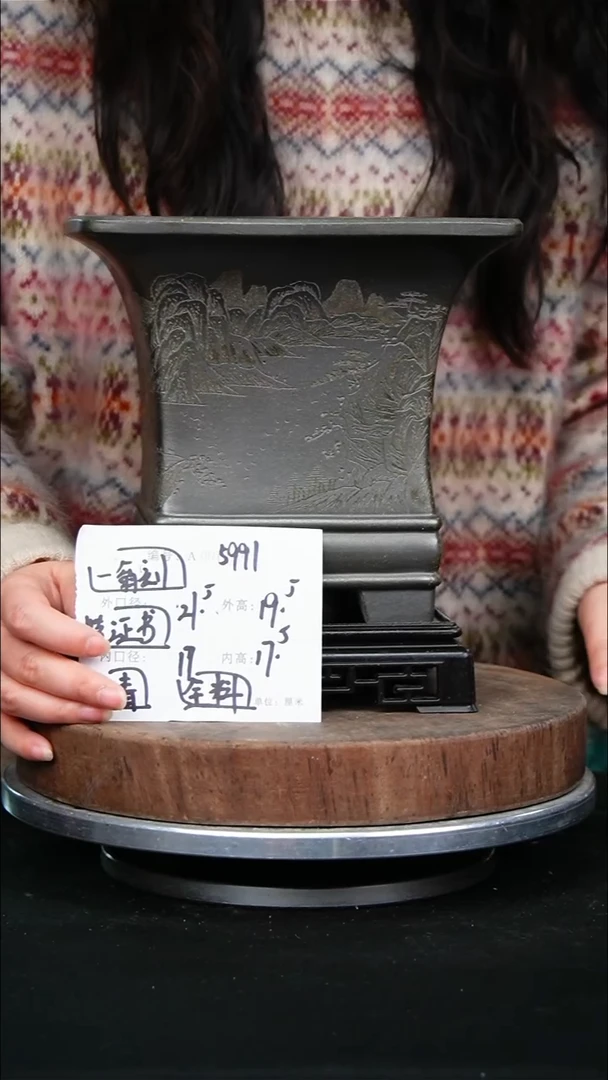 编号:A 5991
外口径: 21.5 外高: 19.5
证书
内口径: 17 内高: 17.5
青 全料 单位: 厘米